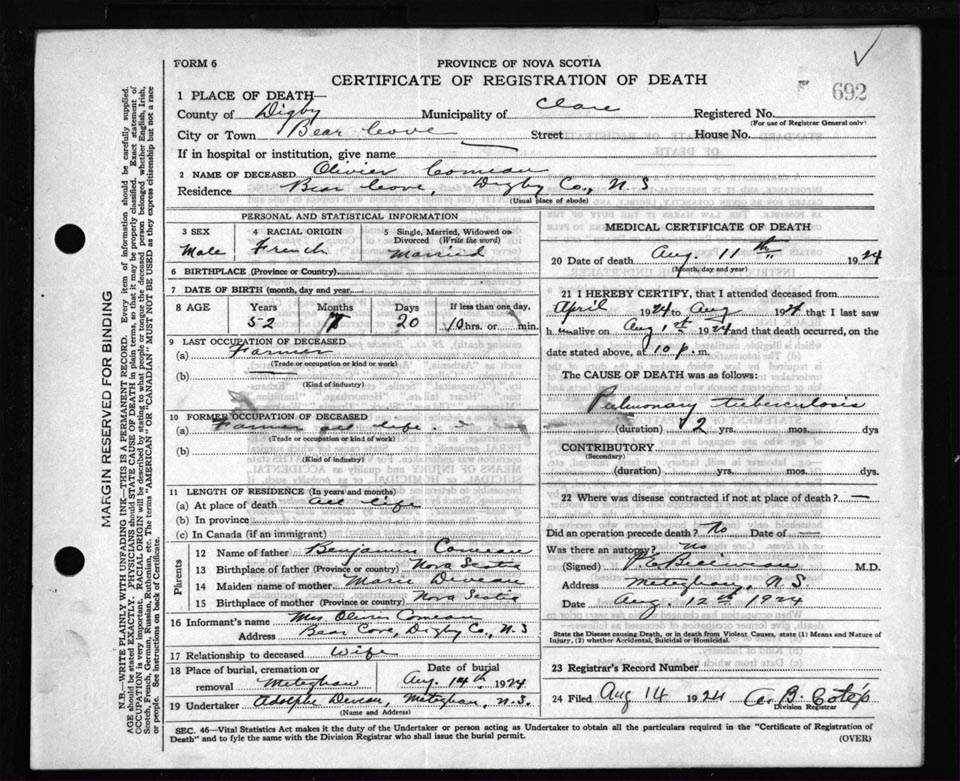 FORM 6
PROVINCE OF NOVA SCOTIA
CERTIFICATE OF REGISTRATION OF DEATH
692
1 PLACE OF DEATH—
County of Digby Municipality of Clare Registered No.
(For use of Registrar General only)
City or Town Bear Cove Street House No.
If in hospital or institution, give name
2 NAME OF DECEASED Olivier Comeau
Residence Bear Cove, Digby Co., N. S
(Usual place of abode)
PERSONAL AND STATISTICAL INFORMATION
3 SEX 4 RACIAL ORIGIN 5 Single, Married, Widowed or Divorced (Write the word)
Male French Married
6 BIRTHPLACE (Province or Country)
7 DATE OF BIRTH (month, day and year)
8 AGE Years Months Days If less than one day,
52 20 10 hrs. or min.
9 LAST OCCUPATION OF DECEASED
(a) Farmer
(Trade or occupation or kind or work)
(b)
(Kind of industry)
10 FORMER OCCUPATION OF DECEASED
(a) Farmer all life.
(Trade or occupation or kind of work)
(b)
(Kind of industry)
11 LENGTH OF RESIDENCE (In years and months)
(a) At place of death all life
(b) In province
(c) In Canada (if an immigrant)
Parents
12 Name of father Benjamin Comeau
13 Birthplace of father (Province or country) Nova Scotia
14 Maiden name of mother Marie Deveau
15 Birthplace of mother (Province or country) Nova Scotia
16 Informant's name Mrs Olivier Comeau
Address Bear Cove, Digby Co., N. S
17 Relationship to deceased Wife
18 Place of burial, cremation or removal Meteghan Date of burial Aug. 14th, 1924
19 Undertaker Adolphe Deveau, Meteghan, N.S.
(Name and Address)
MEDICAL CERTIFICATE OF DEATH
20 Date of death Aug. 11th 1924
(Month, day and year)
21 I HEREBY CERTIFY, that I attended deceased from
April 1924 to Aug 1924 that I last saw
h alive on Aug 1st 1924 and that death occurred, on the
date stated above, at 10 p. m.
The CAUSE OF DEATH was as follows:
Pulmonary tuberculosis
(duration) 2 yrs. mos. dys
CONTRIBUTORY
(Secondary)
(duration) yrs. mos. dys.
22 Where was disease contracted if not at place of death? —
Did an operation precede death? No Date of —
Was there an autopsy? No
(Signed) M.D.
Address Meteghan, N. S.
Date Aug. 12th 1924
State the Disease causing Death, or in death from Violent Causes, state (1) Means and Nature of
Injury, (2) whether Accidental, Suicidal or Homicidal.
23 Registrar's Record Number
24 Filed Aug 14 1924
Division Registrar
SEC. 46—Vital Statistics Act makes it the duty of the Undertaker or person acting as Undertaker to obtain all the particulars required in the "Certificate of Registration of
Death" and to fyle the same with the Division Registrar who shall issue the burial permit.
(OVER)
MARGIN RESERVED FOR BINDING
N.B.—WRITE PLAINLY WITH UNFADING INK—THIS IS A PERMANENT RECORD. Every item of information should be carefully supplied.
AGE should be stated EXACTLY. PHYSICIANS should STATE CAUSE OF DEATH in plain terms, so that it may be properly classified. Exact statement of
OCCUPATION is very important. RACIAL ORIGIN will be described by stating to what people or tongue the deceased person belonged whether English, Irish,
Scotch, French, German, Russian, Ruthenian, etc. The terms "AMERICAN" OR "CANADIAN" MUST NOT BE USED as they express citizenship but not a race
or people. See instructions on back of Certificate.